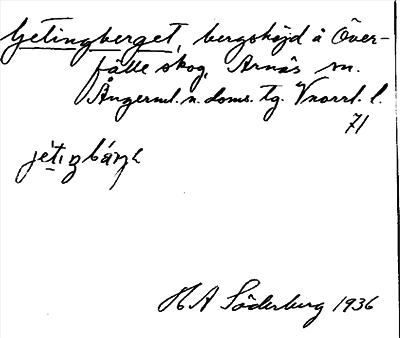 Getingberget, bergshöjd å Över-
fälle skog, Arnäs sn.
Ångerml. n. doms. tg. Vnorrl. l.
71
H A Söderberg 1936